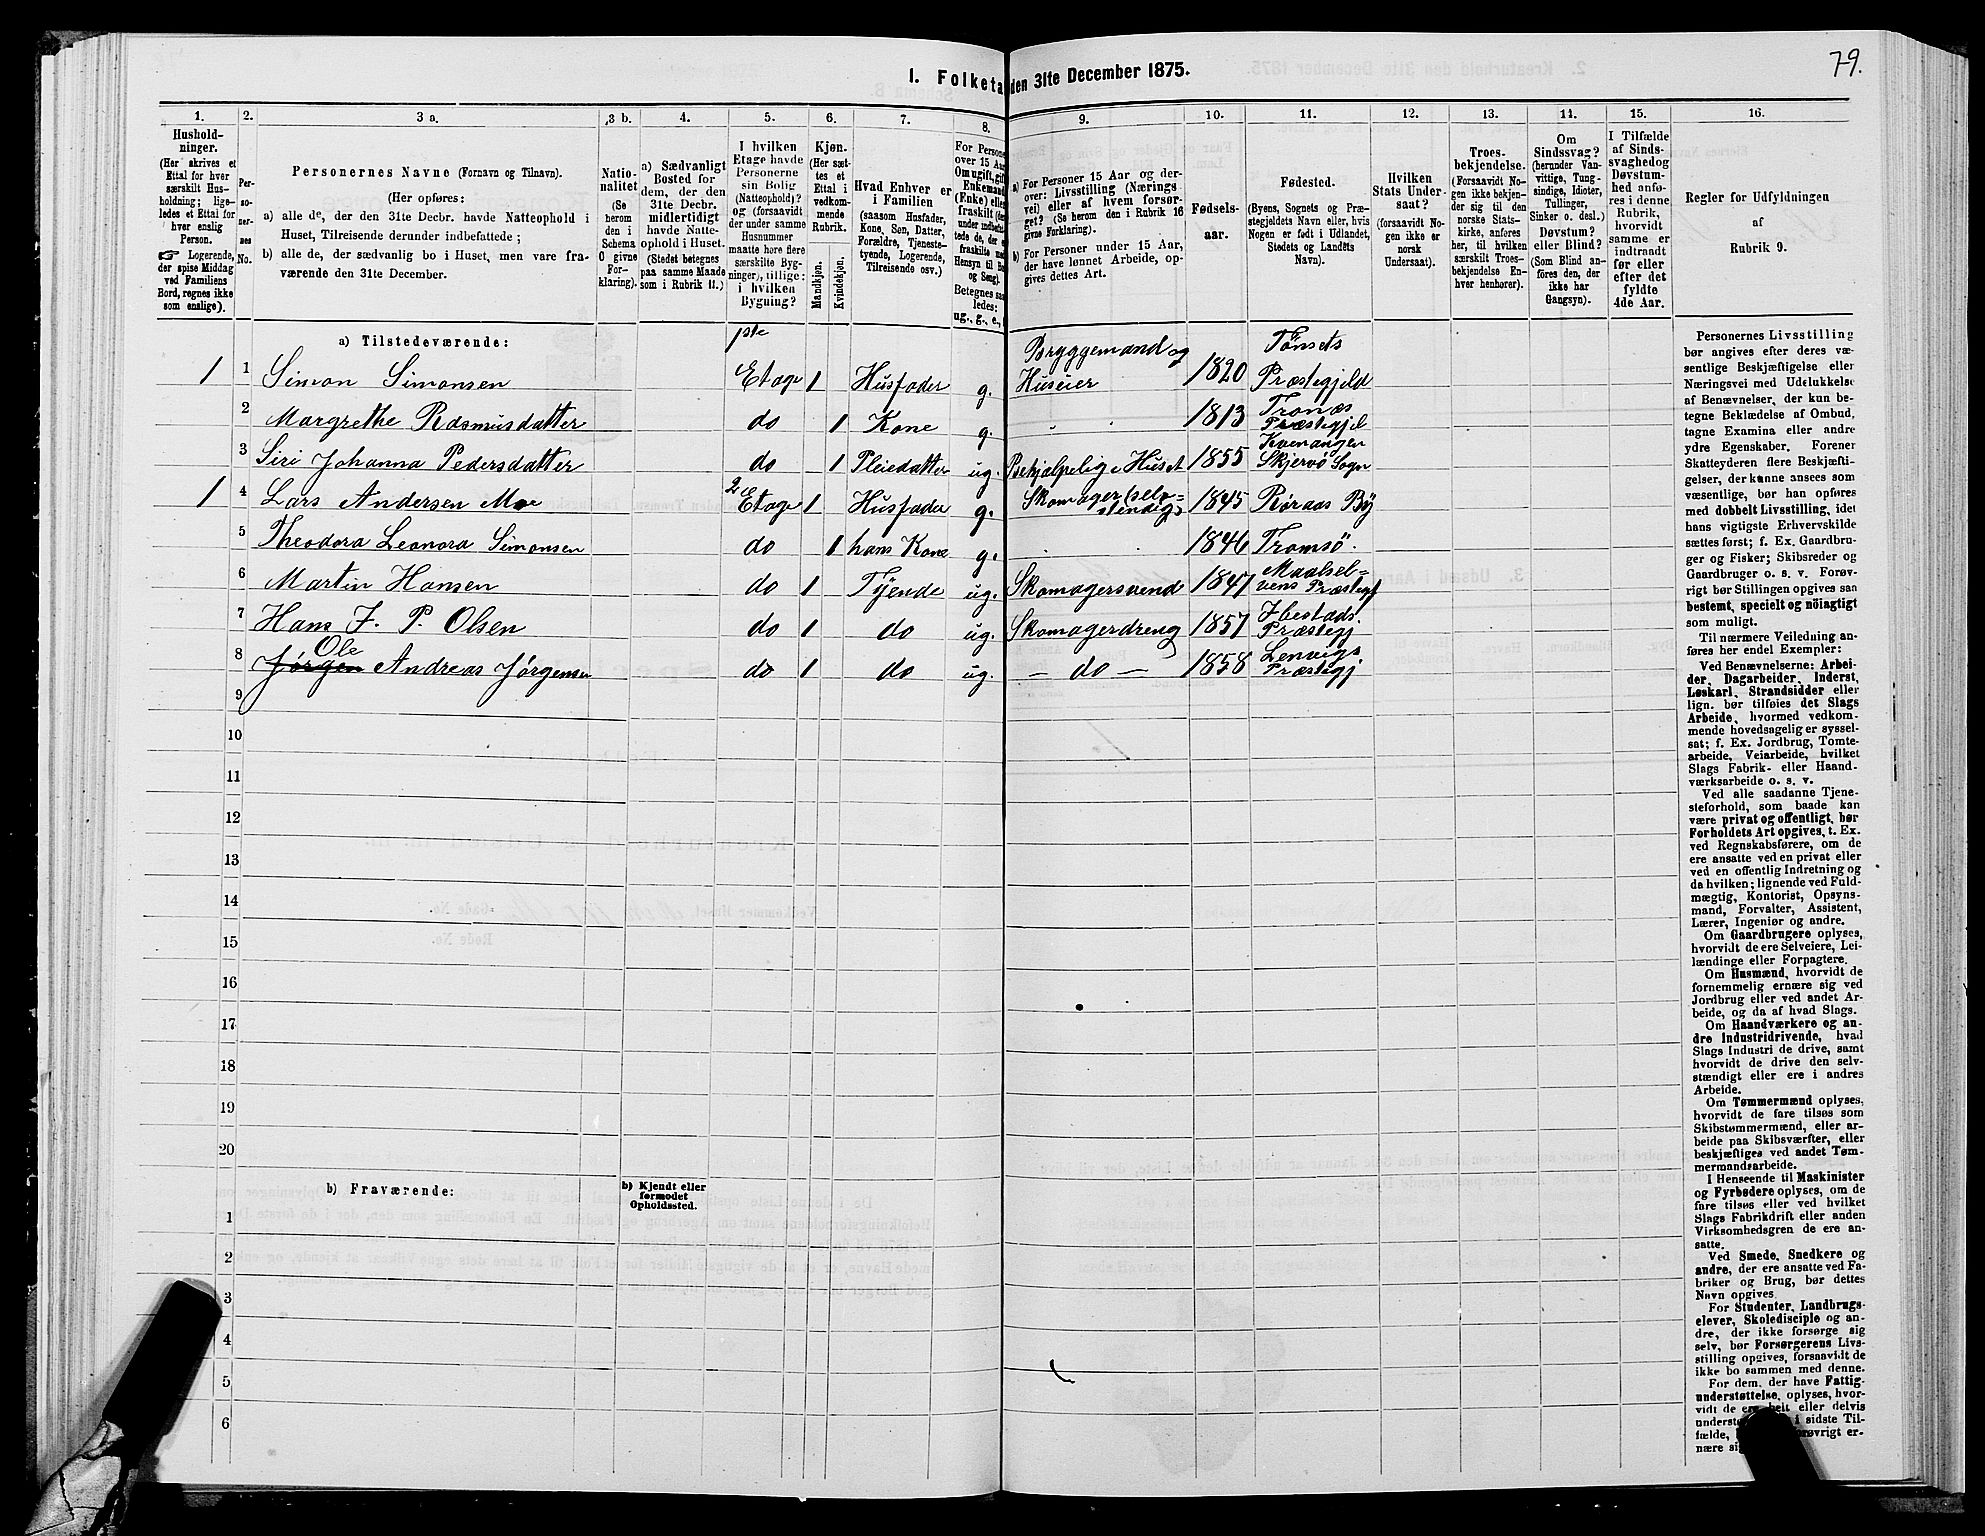 79.
1. Folketa den 31te December 1875.
1. 2. 3 a. 3 b. 4. 5. 6. 7. 8. 9. 10. 11. 12. 13. 14. 15. 16.
Hushold-
ninger.
(Her skrives et
Ettal for hver
særskilt Hus-
holdning; lige-
ledes et Ettal for
hver enslig
Person.
☞ Logerende,
der spise Middag
ved Familiens
Bord, regnes ikke
som enslige).
Per-
so-
ner-
nes
No.
Personernes Navne (Fornavn og Tilnavn).
(Her opføres:
a) alle de, der den 31te Decbr. havde Natteophold i
Huset, Tilreisende derunder indbefattede;
b) alle de, der sædvanlig bo i Huset, men vare fra-
værende den 31te December.
Natio-
nalitet
(Se
herom
den i
Schema
O givne
For-
klaring).
a) Sædvanligt
Bosted for
dem, der den
31te Decbr.
midlertidigt
havde Natte-
ophold i Huset.
(Stedet betegnes
paa samme Maade
som i Rubrik 11.)
I hvilken
Etage havde
Personerne
sin Bolig
(Natteophold)?
og (forsaavidt
der under samme
Husnummer
maatte høre flere
særskilte Byg-
ninger), tillige:
i hvilken
Bygning?
Kjøn.
(Her sæt-
tes et
Ettal i
vedkom-
mende
Rubrik.
Mandkjøn.
Kvindekjøn.
Hvad Enhver er
i Familien
(saasom Husfader,
Kone, Søn, Datter,
Forældre, Tjeneste-
tyende, Logerende,
Tilreisende osv.)
For Persone
over 15 Aar
Om ugift, gift
Enkemand
(Enke) eller
fraskilt
Betegnes saa
ledes:
ug., g., e.,
a) For Personer 15 Aar og der-
over: Livsstilling (Nærings
vei) eller af hvem forsør-
get? (Se herom den i Rubrik 16
givne Forklaring).
b) For Personer under 15 Aar,
der have lønnet Arbeide, op-
gives dettes Art.
Fødsels-
aar.
Fødested.
(Byens, Sognets og Præ-
stegjeldets Navn eller, hvis
Nogen er født i Udlandet,
Stedets og Landets
Navn).
Hvilken
Stats Under-
saat?
(forsaavidt No-
gen ikke er
norsk
Undersaat).
Troes-
bekjendelse.
(Forsaavidt No-
gen ikke bekjen-
der sig til den
norske Stats-
kirke, anføres
her, til hvilken
særskilt Troes-
bekjendelse En-
hver henhører).
Om
Sindssvag?
(herunder Van-
vittige, Tung-
sindige, Idioter,
Tullinger,
Sinker o. desl.)
Døvstum?
eller Blind?
(Som Blind an-
føres den, der
ikke har
Gangsyn).
I Tilfælde
af Sinds-
svaghed og
Døvstum-
hed anfø-
res i denne
Rubrik,
hvorvidt
samme er
indtraadt
før eller
efter det
fyldte
4de Aar.
Regler for Udfyldningen
af
Rubrik 9.
a) Tilstedeværende:
1 1 Simon Simonsen 1ste Etage 1 Husfader g. Bryggemand og Huseier 1820 Tönsets Præstegjeld
2 Margrethe Rasmusdatter do 1 Kone g. 1813 Tranæs Præstegjel
3 Siri Johanna Pedersdatter do 1 Pleiedatter ug. Behjælpelig i Huset 1855 Kvenangen Skjervö Sogn
1 4 Lars Andersen Moe 2 Etage 1 Husfader g. Skomager (selv=stendig) 1845 Röraas By
5 Theodora Leonora Simonsen do 1 hans Kone g. 1846 Tromsö.
6 Martin Hansen do 1 Tyende ug. Skomagersvend 1847 Maalsel=vens Præstegj
7 Hans J. P. Olsen do 1 do ug. Skomagerdreng 1857 Ibestads Præstegj
8 Jörgen Ole Andreas Jörgensen do 1 do ug. — do — 1858 Lenvigs Præstegj
9
10
11
12
13
14
15
16
17
18
19
20
b) Fraværende:
b) Kjendt eller
formodet
Opholdssted.
1
2
3
4
5
6
Personernes Livsstilling
bør angives efter deres væ-
sentlige Beskjæftigelse eller
Næringsvei med Udelukkelse
af Benævnelser, der kun be-
tegne Beklædelse af Ombud,
tagne Examina eller andre
ydre Egenskaber. Forener
Skatteyderen flere Beskjæfti-
gelser, der kunne ansees som
væsentlige, bør han opføres
med dobbelt Livsstilling, idet
hans vigtigste Erhvervskilde
sættes først; f. Ex. Gaardbru-
ger og Fisker; Skibsreder og
Gaardbruger o. s. v. Forøv-
rigt bør Stillingen opgives saa
bestemt, specielt og nöiagtigt
som muligt.
Til nærmere Veiledning an-
føres her endel Exempler:
Ved Benævnelserne: Arbei-
der, Dagarbeider, Inderst,
Løskarl, Strandsidder eller
lign. bør tilføies det Slags
Arbeide, hvormed vedkom-
mende hovedsagelig er syssel-
sat; f. Ex. Jordbrug, Tomte-
arbeide, Veiarbeide, hvilket
Slags Fabrik- eller Haand-
værksarbeide o. s. v.
Ved alle saadanne Tjene-
steforhold, som baade kan
være privat og offentligt, bør
Forholdets Art opgives, t. Ex.
ved Regnskabsførere, om de
ere ansatte ved en privat eller
ved en offentlig Indretning og
da hvilken; lignende ved Fuld-
mægtig, Kontorist, Opsyns-
mand, Forvalter, Assistent,
Lærer, Ingeniør og andre.
Om Gaardbrugere oplyses,
hvorvidt de ere Selveiere, Lei-
lændinge eller Forpagtere.
Om Husmænd, hvorvidt de
fornemmelig ernære sig ved
Jordbrug eller ved andet Ar-
beide, og da af hvad Slags.
Om Haandværkere og an-
dre Industridrivende, hvad
Slags Industri de drive, samt
hvorvidt de drive den selv-
stændigt eller ere i andres
Arbeide.
Om Tømmermænd oplyses,
hvorvidt de fare tilsøs som
Skibstømmermænd, eller ar-
beide paa Skibsværfter, eller
beskjæftiges ved andet Tøm-
mermandsarbeide.
I Henseende til Maskinister
og Fyrbødere oplyses, om de
fare tilsøs eller ved hvilket
Slags Fabrikdrift eller anden
Virksomhedsgren de ere an-
satte.
Ved Smede, Snedkere og
andre, der ere ansatte ved Fa-
briker og Brug, bør dettes
Navn opgives.
For Studenter, Landbrugs-
elever, Skoledisciple og an-
dre, der ikke forsørge sig
selv, bør Forsørgerens Livs-
stilling opgives, forsaavidt de
ikke bo sammen med denne.
For dem, der have Fattig-
understøttelse, oplyses, hvor-
vidt de ere helt eller delvis
i sidste Til-
fælde, øvrigt er-
nære